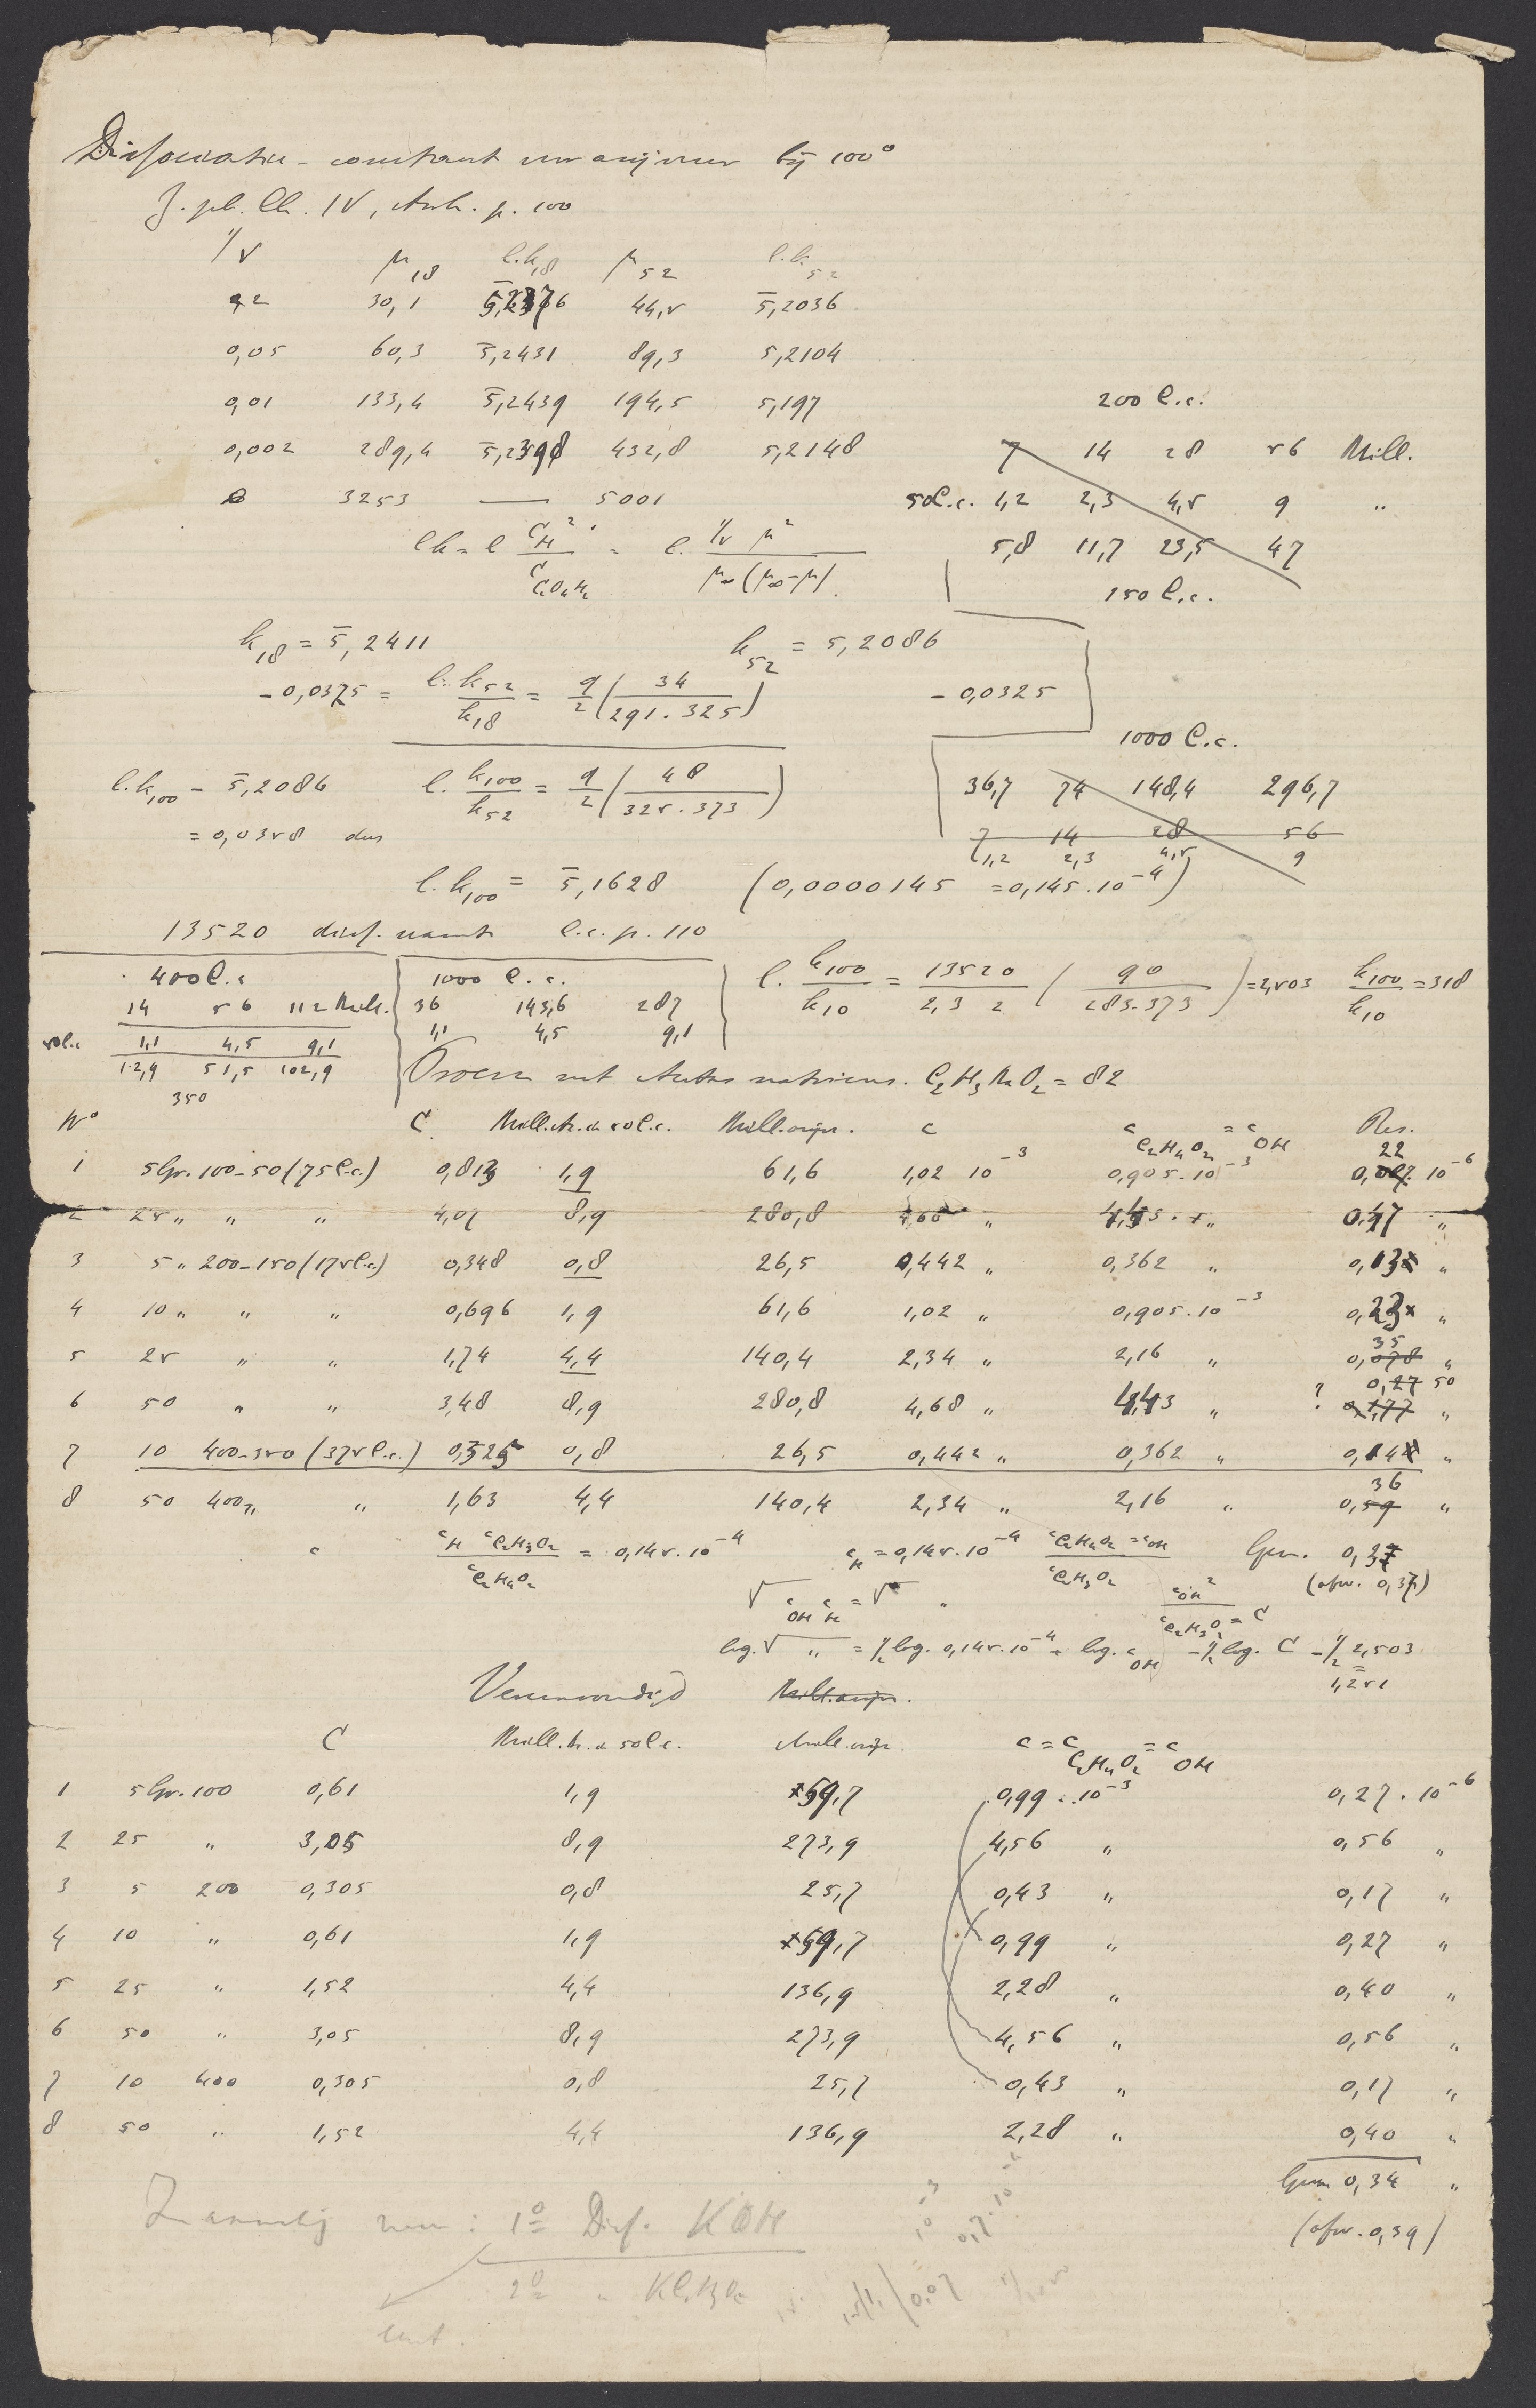 Dissociatie-constant van azijnzuur bij 100°
Z. ph. Ch. IV, p. 100
1/v μ18 l.k18 μ52 l.k52
0,2 30,1 44,5 5̄,2036
0,05 60,3 5̄,2431 89,3 5,2104
0,01 133,4 5̄,2439 194,5 5,197
0,002 289,4 5̄,2398 432,8 5,2148
0 3253 — 5001
lk = l C_H² / C_C2O2H4 = l. 1/v μ² / μ∞(μ∞-μ)
200 C.c.
7 14 28 56 Mill.
50C.c. 1,2 2,3 4,5 9 "
5,8 11,7 23,5 47
150 C.c.
k18 = 5̄,2411 k52 = 5,2086
-0,0375 = l. k52/k18 = q/2 (34 / 291.325) - 0,0325
1000 C.c.
36,7 74 148,4 296,7
7 14 28 56
1,2 2,3 4,5 9
l.k100 - 5̄,2086 l. k100/k52 = q/2 (48 / 325.373)
= 0,0358 dus
l.k100 = 5̄,1628 (0,0000145 = 0,145.10⁻⁴)
13520 diss. l.c. p. 110
400C.c 1000 C.c.
14 56 112 Mill. 36 143,6 287
50C.c 1,1 4,5 9,1 1,1 4,5 9,1
12,9 51,5 102,9
350
l. k100/k10 = 13520 / 2,3 2 (90 / 283.373) = 2,503 k100/k10 = 318
Proeven met C2H3NaO2 = 82
N° C Mill. 50C.c. Mill. c c C2H4O2 = c OH Res.
1 5Gr. 100-50(75C.c.) 0,813 1,9 61,6 1,02 10⁻³ 0,905.10⁻³ 0,22 10⁻⁶
2 25 " " " 4,07 8,9 280,8 4,68 " 4,43 " 0,47 "
3 5 " 200-150(175C.c.) 0,348 0,8 26,5 0,442 " 0,362 " 0,13 "
4 10 " " " 0,696 1,9 61,6 1,02 " 0,905.10⁻³ 0,23 "
5 25 " " 1,74 4,4 140,4 2,34 " 2,16 " 0,35 "
6 50 " " 3,48 8,9 280,8 4,68 " 4,43 " ? 0,50 "
7 10 400-350 (375C.c.) 0,325 0,8 26,5 0,442 " 0,362 " 0,14 "
8 50 400 " " 1,63 4,4 140,4 2,34 " 2,16 " 0,36 "
c cH cC2H3O2 / cC2H4O2 = 0,145.10⁻⁴ cH = 0,145.10⁻⁴ cC2H4O2 = cOH / cC2H3O2 Gem. 0,3
(afw. 0,37)
√ cOH cH = √ " cOH² / cC2H3O2 = C
log. √ " = ½ log. 0,145.10⁻⁴ + log. cOH - ½ log. C - ½ 2,503 =
1,251
Vereenvoudigd
C Mill. 50C.c. Mill. c = c C2H4O2 = c OH
1 5Gr. 100 0,61 1,9 59,7 0,99 . 10⁻³ 0,27 . 10⁻⁶
2 25 " 3,05 8,9 273,9 4,56 " 0,56 "
3 5 200 0,305 0,8 25,7 0,43 " 0,17 "
4 10 " 0,61 1,9 59,7 0,99 " 0,27 "
5 25 " 1,52 4,4 136,9 2,28 " 0,40 "
6 50 " 3,05 8,9 273,9 4,56 " 0,56 "
7 10 400 0,305 0,8 25,7 0,43 " 0,17 "
8 50 " 1,52 4,4 136,9 2,28 " 0,40 "
Gem 0,34 "
(afw. 0,39)
1° Diss. KOH
2° "